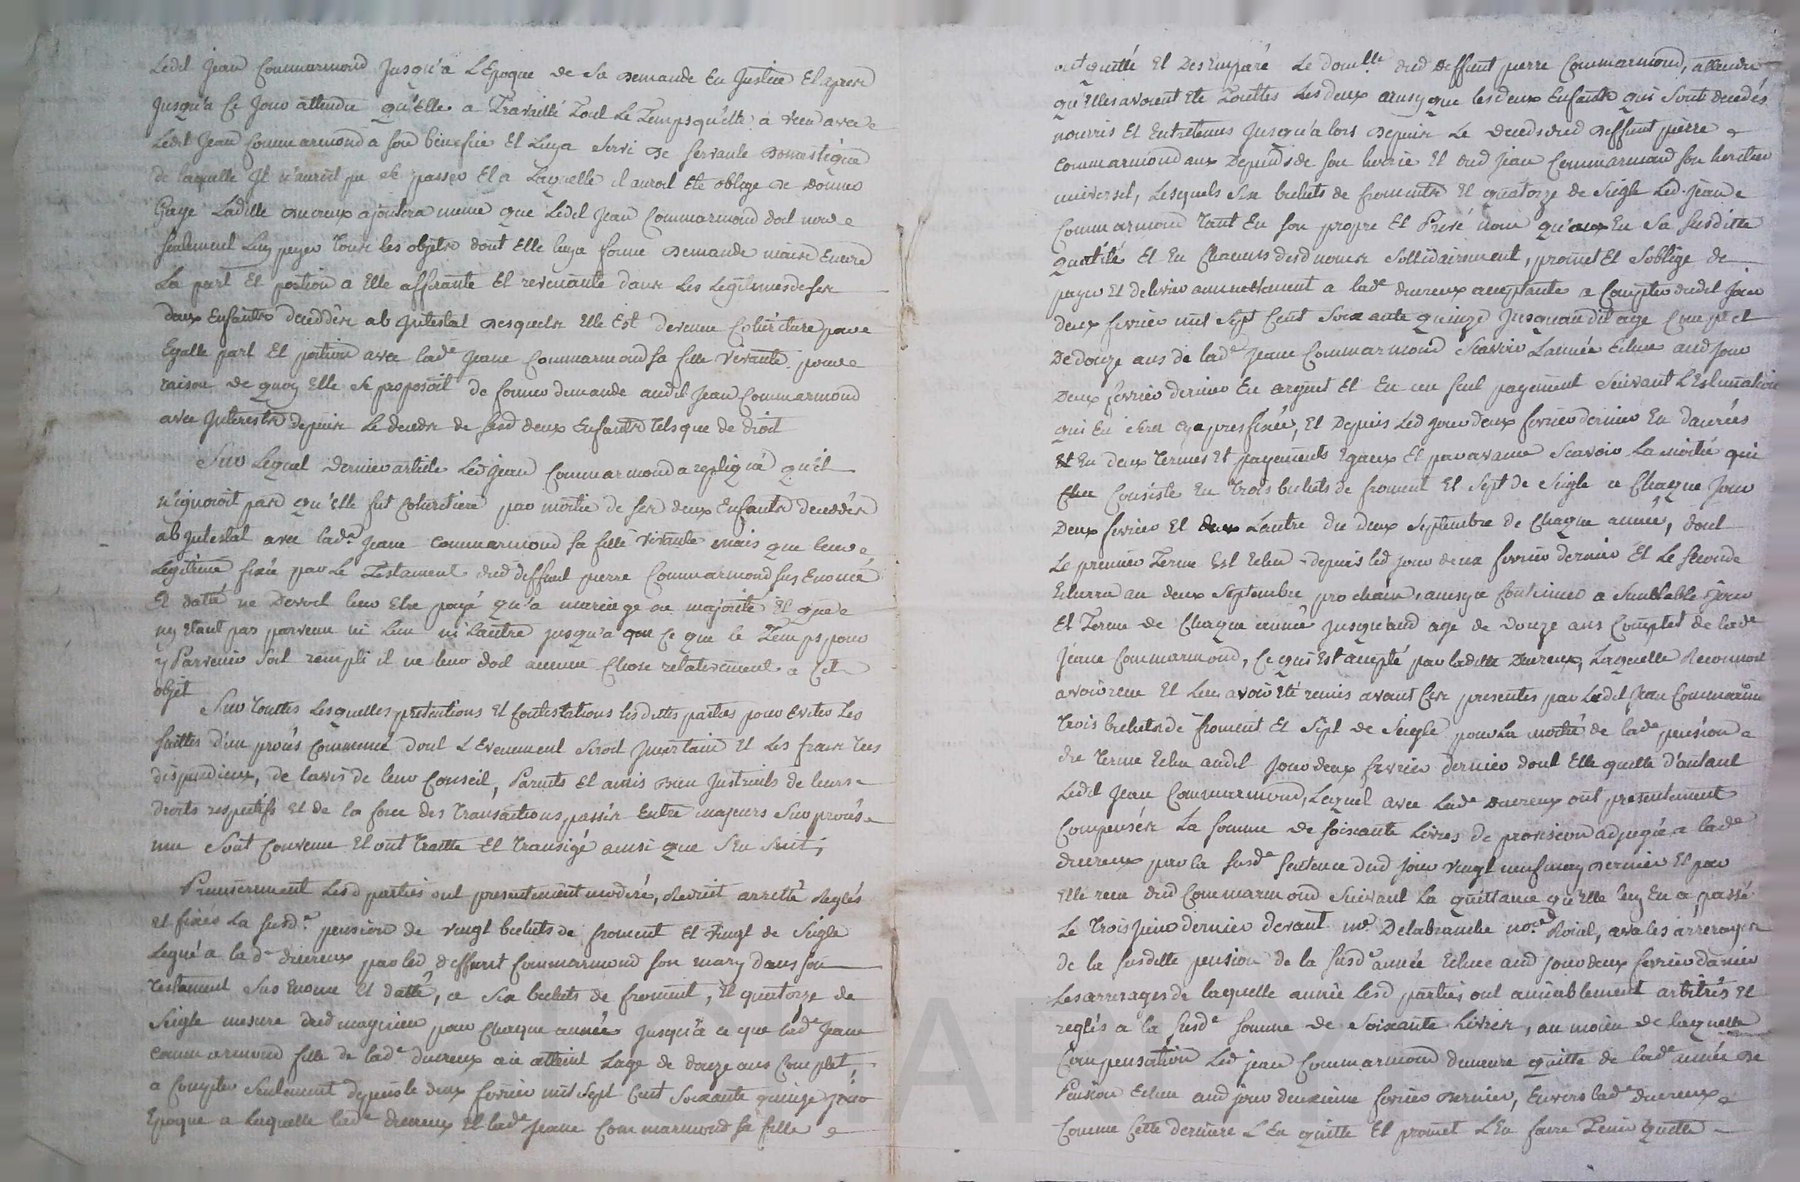 Ledit Jean Commarmond Jusqu'a L'Epoque de Sa Demande En Justice Et apres
Jusqu'a Ce Jour attendu qu'Elle a Travaillé Tout Le Temps qu'elle a vécu avec
Ledit Jean Commarmond a son benefice Et Luya Servi De Servante Domestique
de laquelle Il n'auroit pu se passer Et a Laquelle il auroit Eté obligé De donner
Gage Ladite Ducreux ajoutera meme que Ledit Jean Commarmond doit non
seulement Luy payer tous les objets dont Elle luya formé Demande mais Encore
La part Et portion a Elle afférante Et revenante dans Les Légitimes de ses
deux Enfants deceddés ab Intestat Desquels Elle Est devenue Cohéritiere pour
Egalle part Et portion avec lade Jeane Commarmond sa fille vivante pour
raison de quoy Elle se proposoit de former demande audit Jean Commarmond
avec Interests depuis Le deceds de sesd deux Enfants tels que de droit
Sur Lequel dernier article Led Jean Commarmond a repliqué qu'il
n'ignoroit pas qu'elle fut Cohéritiere par moitié de ses deux Enfants deceddés
ab Intestat avec lade Jeane Commarmond sa fille vivante mais que leur
Légitime fixée par Le Testament dud deffunt pierre Commarmond sus Enoncé
Et datté ne Devoit leur Etre payé qu'a mariage ou majorité Et que
ny Etant pas parvenu ni L'un ni L'autre jusqu'a ce que le Temps pour
y Parvenir soit rempli il ne leur doit aucune Chose relativement a Cet
objet
Sur Touttes Lesquelles pretentions Et Contestations lesdittes parties pour Eviter Les
suittes d'un procés Commencé dont L'Evenement Seroit Incertain Et Les frais tres
dispendieux, de lavis de leur Conseil, Parents Et amis Bien Instruits de leurs
droits respectifs Et de la force des Transactions passées Entre majeurs Sur procés
mu Sont Convenu Et ont Traitté Et Transigé ainsi que S'En Suit,
Premierement Lesd parties ont presentement moderé, Reduit arretté Reglés
et fixés La susde pension de vingt bichets de froment Et vingt de Seigle
Legué a lade ducreux par led deffunt Commarmond son mary dans son
Testament Sus Enoncé Et datté, a Six bichets de froment, Et quatorze de
Seigle mesure dud magnieu pour Chaque année Jusqu'a ce que lade Jeane
Commarmond fille de lade ducreux aie atteint Lage de douze ans Complet,
a Compter Seulement depuis le deux fevrier mil Sept Cent Soixante quinze jour
Epoque a Laquelle lade ducreux Et lade Jeane Commarmond sa fille
ont quitté Et Desemparé Le domlle dud Deffunt pierre Commarmond, attendu
qu'Elles avoient Eté Touttes Les deux ainsy que les deux Enfants qui Sont decedés
nourris Et Entretenus Jusqu'a lors Depuis Le deceds dud Deffunt pierre
Commarmond aux Depends de son hoirie Et dud Jean Commarmond son heritier
universel, Lesquels Six bichets de froment Et quatorze de Seigle Led. Jean
Commarmond Tant En son propre Et Privé nom qu'En Sa Susditte
qualité Et En Chacuns desd noms Sollidairement, promet Et S'oblige de
payer Et delivrer annuelement a lade ducreux acceptante a Compter dudit Jour
deux fevrier mil Sept Cent Soixante quinze Jusquaudit age Complet
De douze ans de lade Jeane Commarmond Scavoir Lannée Echue aud Jour
Deux fevrier dernier En argent Et En un seul payement Suivant L'Estimation
qui En Sera Cyapres fixée, Et Depuis Led jour deux fevrier dernier En danrées
Et En deux Termes Et payements Egaux Et par avance Scavoir La moitié qui
Consiste En trois bichets de froment Et Sept de Seigle a Chaque Jour
Deux fevrier Et L'autre du deux Septembre de Chaque année, dont
Le premier Terme Est Echu depuis led jour deux fevrier dernier Et Le Second
Echerra au deux Septembre prochain, ainsy a Continuer a Semblable jour
Et Terme de Chaque année Jusqu'aud age de Douze ans Complet de lade
Jeane Commarmond, Ce qui Est accepté par laditte Ducreux, Laquelle Reconnoit
avoir recu Et Luy avoir Eté remis avant Ces presentes par Ledit Jean Commarmond
Trois bichets de froment Et Sept de Seigle pour La moitié de lade pension
du Terme Echu audit Jour deux fevrier dernier dont Elle quitte d'autant
Ledit Jean Commarmond, Lequel avec Lade Ducreux ont presentement
Compensés La Somme de Soixante Livres de provision adjugée a lade
ducreux par la susde Sentence dud jour vingt neuf may Dernier Et par
Elle recu dud Commarmond Suivant La quittance qu'Elle luy En a passé
Le Trois Juin dernier devant me Delabranche nore Roial, avec les arrerages
de la susditte pension de la susde année Echue aud jour deux fevrier dernier
Les arrerages de laquelle année Lesd parties ont amiablement arbitrés Et
reglés a la susde Somme de Soixante Livres, au moien de laquelle
Compensation Led jean Commarmond demeure quitte de lade année De
Pension Echue aud jour deuxieme fevrier Dernier, Envers lade ducreux
Comme Cette derniere L'En quitte Et promet L'En faire Tenir quitte